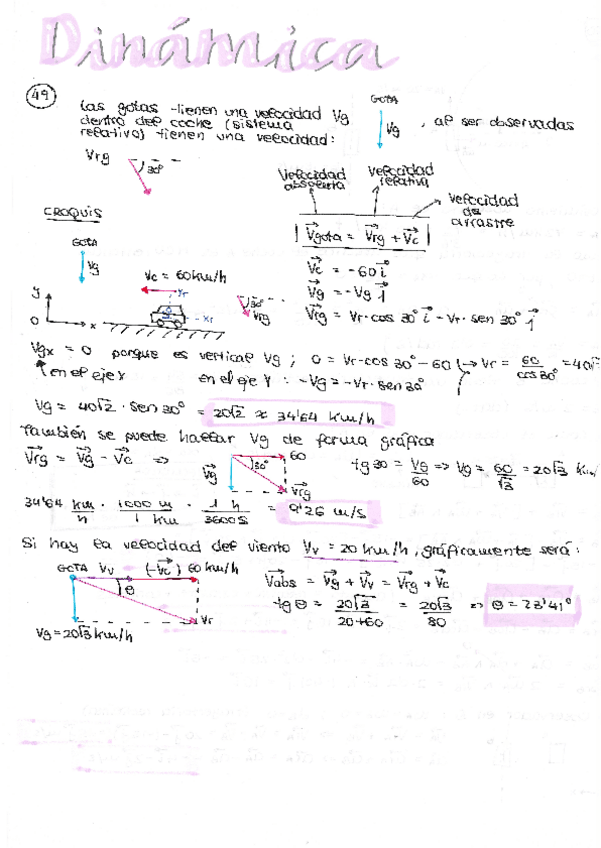 Dinámica
49
Las gotas tienen una velocidad Vg
dentro del coche (sistema
relativo) tienen una velocidad:
GOTA
Vg
, al ser observadas
Vrg
30°
Velocidad absoluta
Velocidad relativa
Velocidad de arrastre
V⃗gota = V⃗rg + V⃗c
CROQUIS
GOTA
Vg
Vc = 60 km/h
Yr
Xr
y
0
x
30°
Vrg
V⃗c = -60 i⃗
V⃗g = -Vg j⃗
V⃗rg = Vr·cos 30° i⃗ - Vr·sen 30° j⃗
Vgx = 0 porque es vertical Vg ; 0 = Vr·cos 30° - 60 → Vr = 60/cos 30°
en el eje X en el eje Y : -Vg = -Vr·sen 30°
Vg = 40√2 · sen 30° = 20√2 ≈ 34'64 km/h
También se puede hallar Vg de forma gráfica
V⃗rg = V⃗g - V⃗c ⇒
V⃗g
30°
60
V⃗rg
tg 30 = Vg/60 ⇒ Vg = 60/√3 = 20√3 km/
34'64 km/h · 1000 m/1 km · 1 h/3600 s = 9'26 m/s
Si hay la velocidad del viento Vv = 20 km/h, gráficamente será:
GOTA Vv (-V⃗c) 60 km/h
θ
Vr
Vg = 20√3 km/h
V⃗abs = V⃗g + V⃗v = V⃗rg + V⃗c
tg θ = 20√3/20+60 = 20√3/80 ⇒ θ = 23'41°